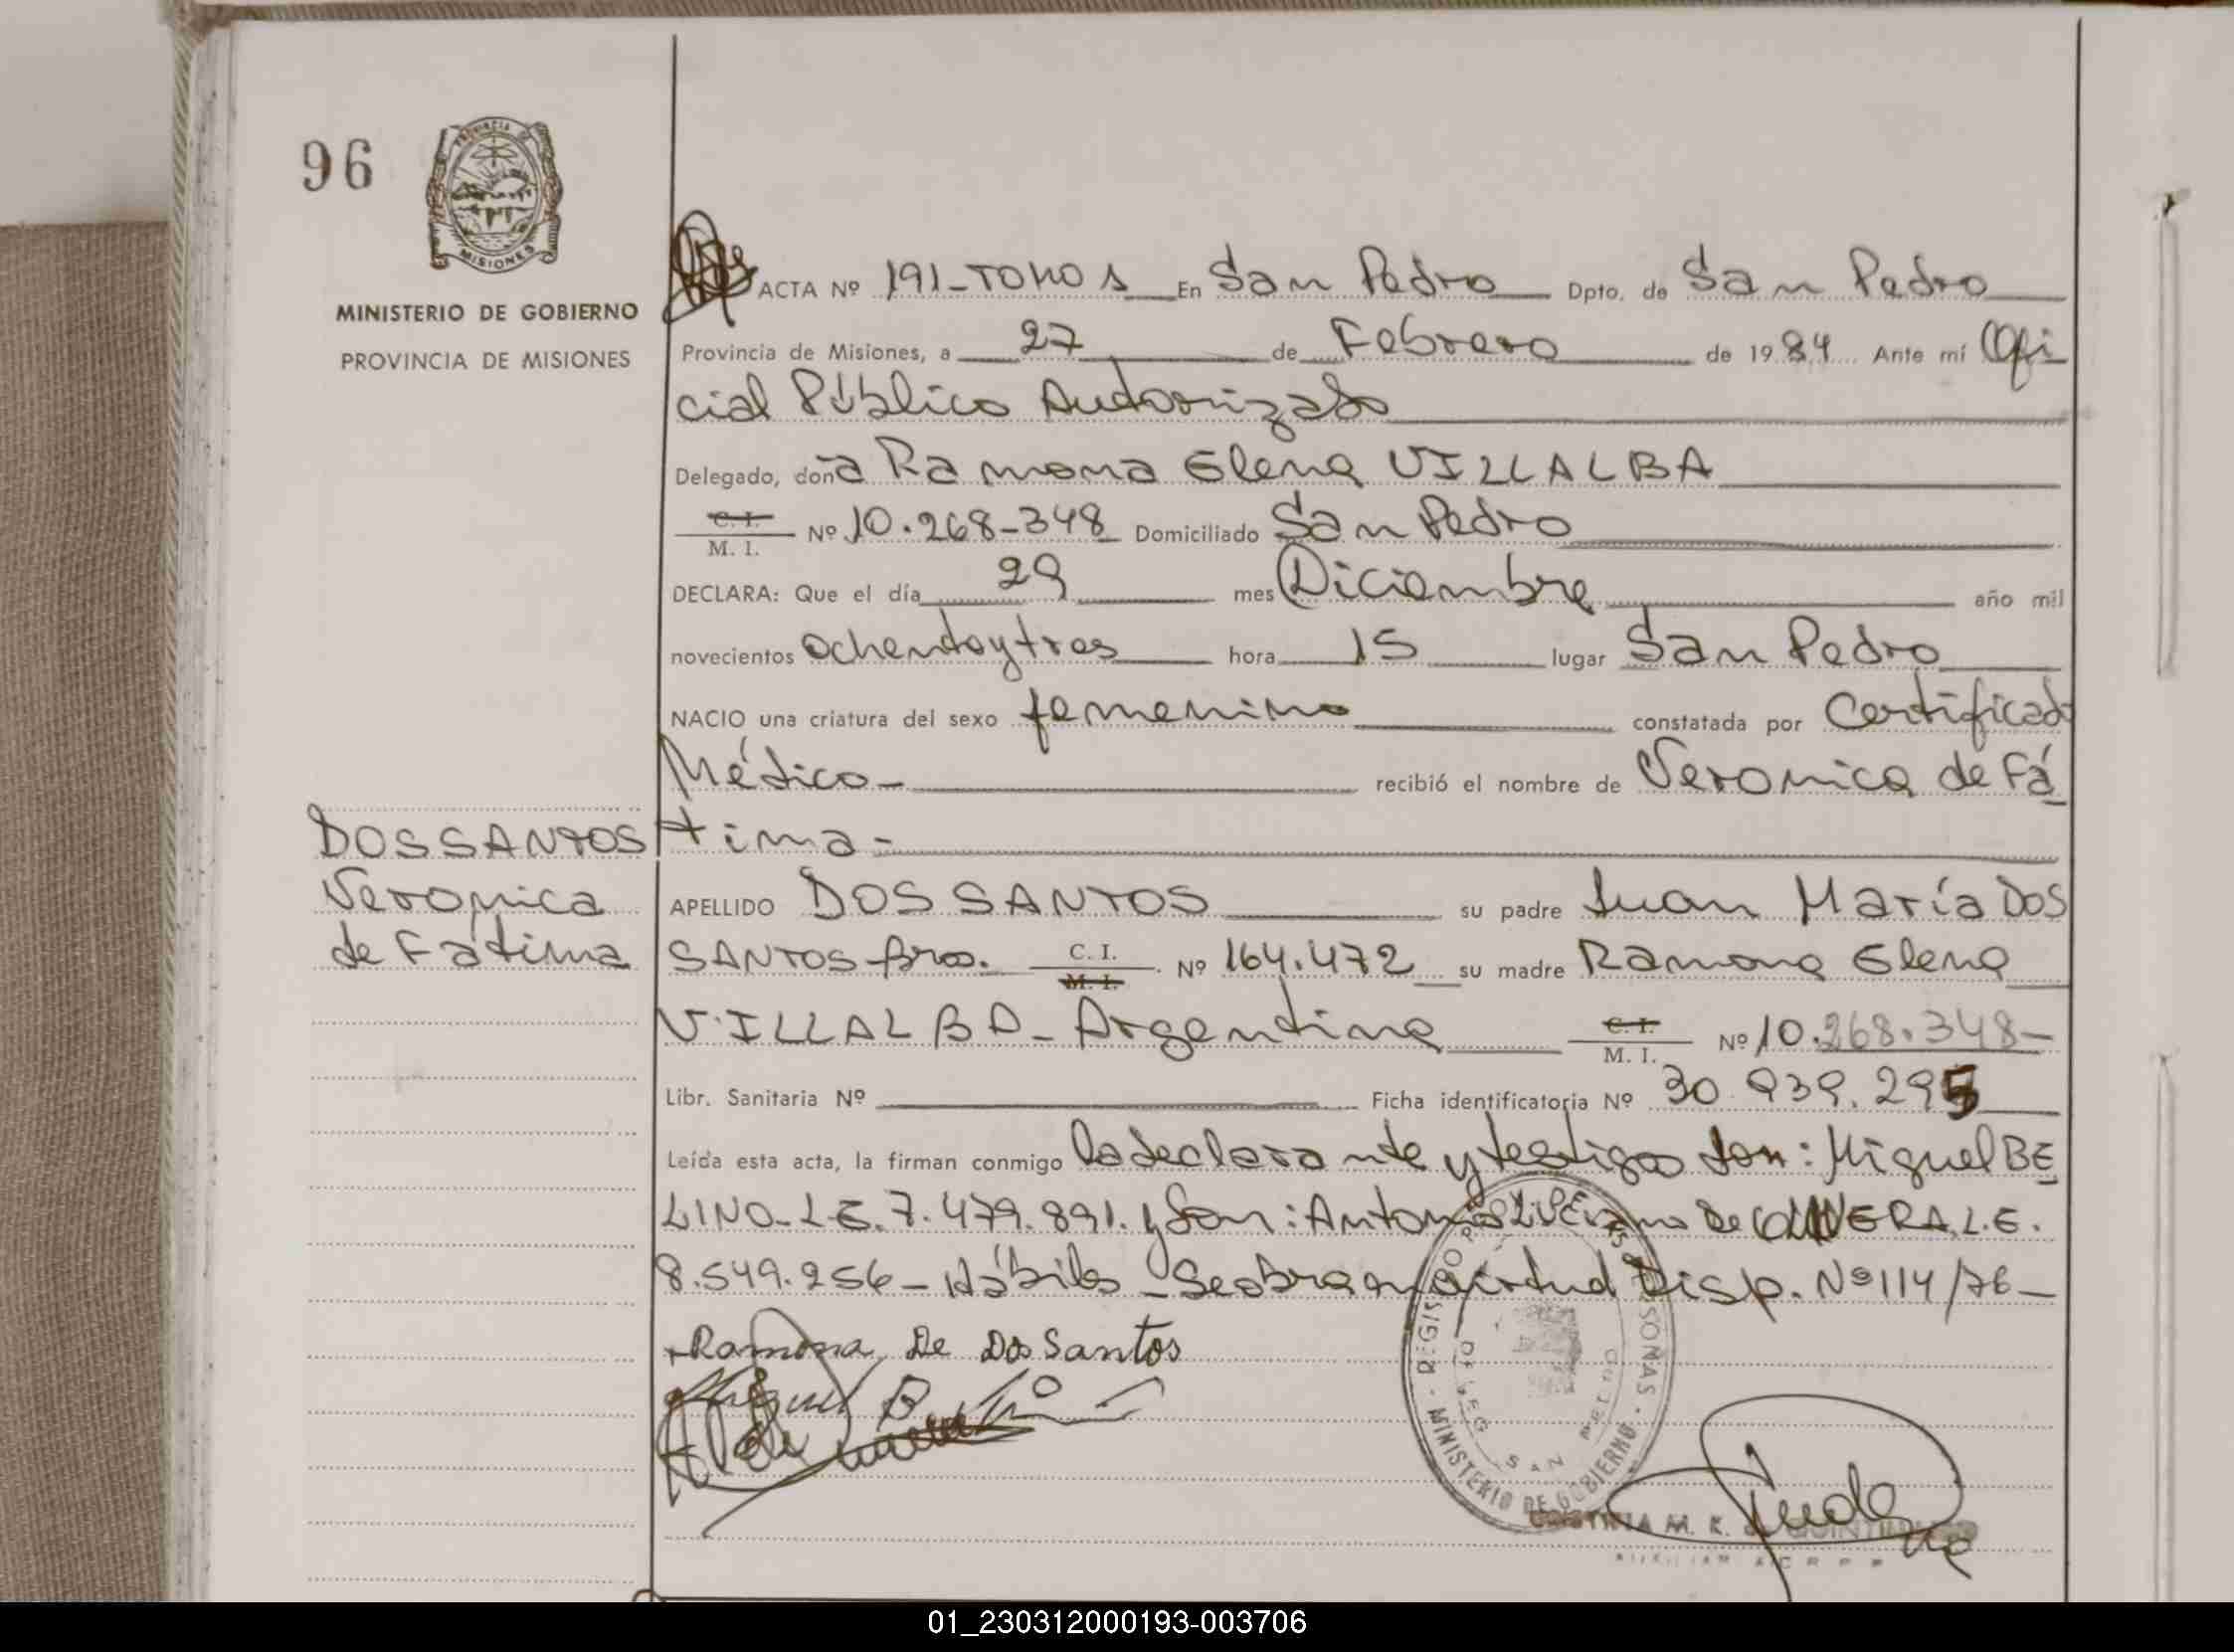 96
PROVINCIA DE
MISIONES
MINISTERIO DE GOBIERNO
PROVINCIA DE MISIONES
DOS SANTOS
Veronica
de Fatima
ACTA Nº 191-TOMO 1 En San Pedro Dpto. de San Pedro
Provincia de Misiones, a 27 de Febrero de 1984 Ante mí Ofi
cial Público Autorizado
Delegado, doña Ramona Elena VILLALBA
C. I.
M. I. Nº 10.268-348 Domiciliado San Pedro
DECLARA: Que el día 29 mes Diciembre año mil
novecientos ochentaytres hora 15 lugar San Pedro
NACIO una criatura del sexo femenino constatada por Certificado
Médico- recibió el nombre de Veronica de Fá
tima-
APELLIDO DOS SANTOS su padre Juan María DOS
SANTOS Bras. C. I.
M. I. Nº 164.472 su madre Ramona Elena
VILLALBA- Argentina C. I.
M. I. Nº 10.268.348-
Libr. Sanitaria Nº Ficha identificatoria Nº 30.939.295
Leída esta acta, la firman conmigo la declarante y testigos don: Miguel BE
LINO- L E. 7.479.891. y don: Antonio De OLIVERA, L.E.
8.549.256- Hábiles - Se obra en virtud Disp. Nº 114/76-
Ramona De Dos Santos
Miguel B
REGISTRO PERSONAS
MINISTERIO DE GOBIERNO
DELEG SAN PEDRO
M. R.
AUXILIAR
01_230312000193-003706